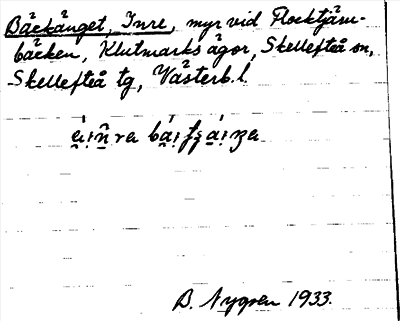 Bäckänget, Inre, myr vid Flocktjärn-
bäcken, Klutmarks ägor, Skellefteå sn,
Skellefteå tg, Västerb. l.
B. Nygren 1933.